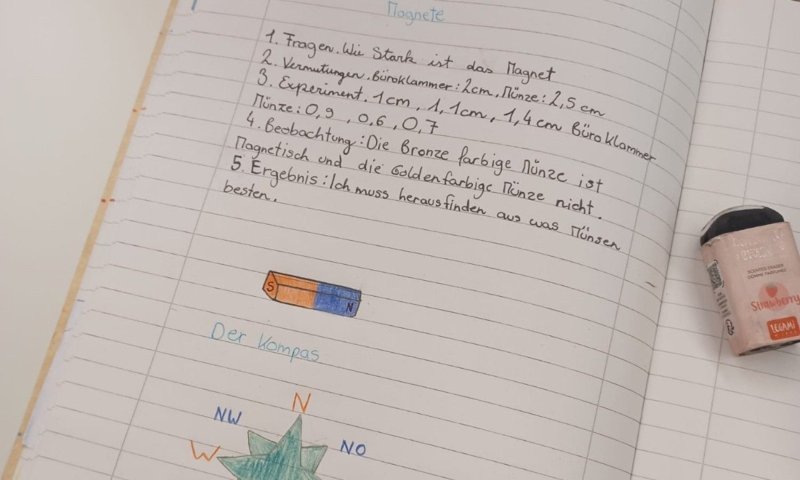 Magnete
1. Fragen. Wie Stark ist das Magnet
2. Vermutungen. Büroklammer: 2cm, Münze: 2,5 cm
3. Experiment. 1cm, 1,1cm, 1,4cm Büroklammer
Münze: 0,9, 0,6, 0,7
4. Beobachtung: Die Bronze farbige Münze ist
Magnetisch und die Goldenfarbige Münze nicht.
5. Ergebnis: Ich muss herausfinden aus was Münsen
besten.
S
N
Der Kompas
N
NW
NO
W
SCENTED ERASER
GOMME PARFUMÉE
Strawberry
LEGAMI